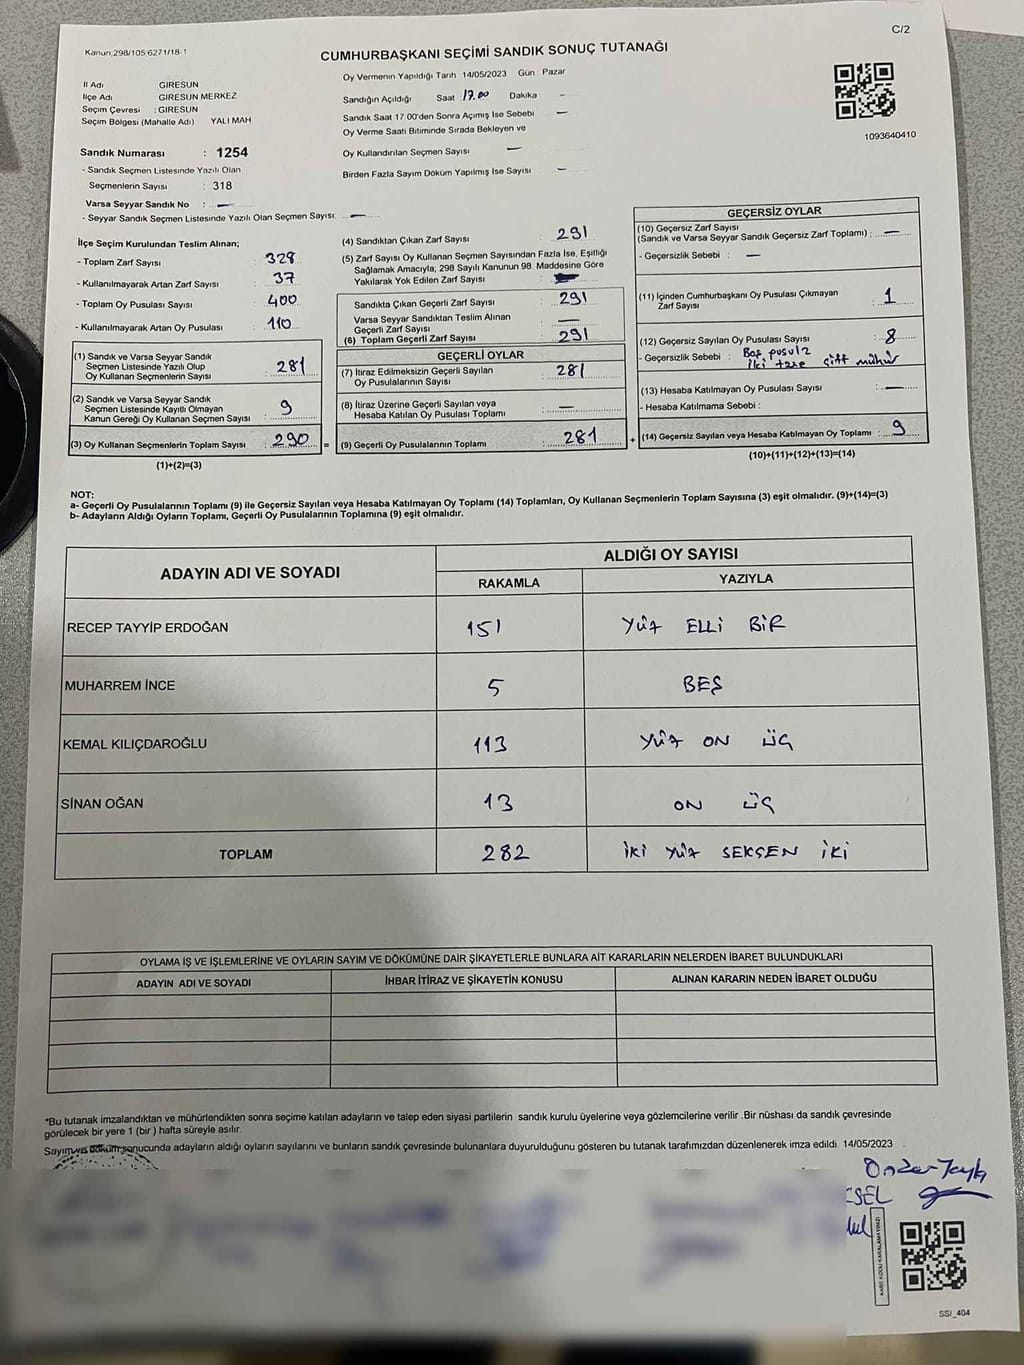 C/2
Kanun:298/105 6271/18-1
CUMHURBAŞKANI SEÇİMİ SANDIK SONUÇ TUTANAĞI
Oy Vermenin Yapıldığı Tarih 14/05/2023 Gün : Pazar
İl Adı GİRESUN
İlçe Adı GİRESUN MERKEZ
Seçim Çevresi : GİRESUN
Seçim Bölgesi (Mahalle Adı) YALI MAH
Sandığın Açıldığı Saat 17.00 Dakika –
Sandık Saat 17 00'den Sonra Açımış İse Sebebi –
Oy Verme Saati Bitiminde Sırada Bekleyen ve
Oy Kullandırılan Seçmen Sayısı –
Birden Fazla Sayım Döküm Yapılmış İse Sayısı –
1093640410
Sandık Numarası : 1254
- Sandık Seçmen Listesinde Yazılı Olan
Seçmenlerin Sayısı : 318
Varsa Seyyar Sandık No : –
- Seyyar Sandık Seçmen Listesinde Yazılı Olan Seçmen Sayısı: –
İlçe Seçim Kurulundan Teslim Alınan;
- Toplam Zarf Sayısı : 328
- Kullanılmayarak Artan Zarf Sayısı : 37
- Toplam Oy Pusulası Sayısı : 400
- Kullanılmayarak Artan Oy Pusulası : 110
(1) Sandık ve Varsa Seyyar Sandık
Seçmen Listesinde Yazılı Olup
Oy Kullanan Seçmenlerin Sayısı : 281
(2) Sandık ve Varsa Seyyar Sandık
Seçmen Listesinde Kayıtlı Olmayan
Kanun Gereği Oy Kullanan Seçmen Sayısı : 9
(3) Oy Kullanan Seçmenlerin Toplam Sayısı : 290 =
(1)+(2)=(3)
(4) Sandıktan Çıkan Zarf Sayısı : 291
(5) Zarf Sayısı Oy Kullanan Seçmen Sayısından Fazla İse, Eşitliği
Sağlamak Amacıyla, 298 Sayılı Kanunun 98. Maddesine Göre
Yakılarak Yok Edilen Zarf Sayısı :
Sandıkta Çıkan Geçerli Zarf Sayısı : 291
Varsa Seyyar Sandıktan Teslim Alınan
Geçerli Zarf Sayısı : –
(6) Toplam Geçerli Zarf Sayısı : 291
GEÇERLİ OYLAR
(7) İtiraz Edilmeksizin Geçerli Sayılan
Oy Pusulalarının Sayısı : 281
(8) İtiraz Üzerine Geçerli Sayılan veya
Hesaba Katılan Oy Pusulası Toplamı : –
(9) Geçerli Oy Pusulalarının Toplamı : 281 +
GEÇERSİZ OYLAR
(10) Geçersiz Zarf Sayısı
(Sandık ve Varsa Seyyar Sandık Geçersiz Zarf Toplamı) : –
- Geçersizlik Sebebi : –
(11) İçinden Cumhurbaşkanı Oy Pusulası Çıkmayan
Zarf Sayısı : 1
(12) Geçersiz Sayılan Oy Pusulası Sayısı : 8
- Geçersizlik Sebebi : Boş pusula
iki tane çift mühür
(13) Hesaba Katılmayan Oy Pusulası Sayısı : –
- Hesaba Katılmama Sebebi :
(14) Geçersiz Sayılan veya Hesaba Katılmayan Oy Toplamı : 9
(10)+(11)+(12)+(13)=(14)
NOT:
a- Geçerli Oy Pusulalarının Toplamı (9) ile Geçersiz Sayılan veya Hesaba Katılmayan Oy Toplamı (14) Toplamları, Oy Kullanan Seçmenlerin Toplam Sayısına (3) eşit olmalıdır. (9)+(14)=(3)
b- Adayların Aldığı Oyların Toplamı, Geçerli Oy Pusulalarının Toplamına (9) eşit olmalıdır.
ADAYIN ADI VE SOYADI
ALDIĞI OY SAYISI
RAKAMLA YAZIYLA
RECEP TAYYİP ERDOĞAN 151 YÜZ ELLİ BİR
MUHARREM İNCE 5 BEŞ
KEMAL KILIÇDAROĞLU 113 YÜZ ON ÜÇ
SİNAN OĞAN 13 ON ÜÇ
TOPLAM 282 İKİ YÜZ SEKSEN İKİ
OYLAMA İŞ VE İŞLEMLERİNE VE OYLARIN SAYIM VE DÖKÜMÜNE DAİR ŞİKAYETLERLE BUNLARA AİT KARARLARIN NELERDEN İBARET BULUNDUKLARI
ADAYIN ADI VE SOYADI İHBAR İTİRAZ VE ŞİKAYETİN KONUSU ALINAN KARARIN NEDEN İBARET OLDUĞU
*Bu tutanak imzalandıktan ve mühürlendikten sonra seçime katılan adayların ve talep eden siyasi partilerin sandık kurulu üyelerine veya gözlemcilerine verilir .Bir nüshası da sandık çevresinde
görülecek bir yere 1 (bir ) hafta süreyle asılır.
Sayım ve döküm sonucunda adayların aldığı oyların sayılarını ve bunların sandık çevresinde bulunanlara duyurulduğunu gösteren bu tutanak tarafımızdan düzenlenerek imza edildi. 14/05/2023
SSI_404